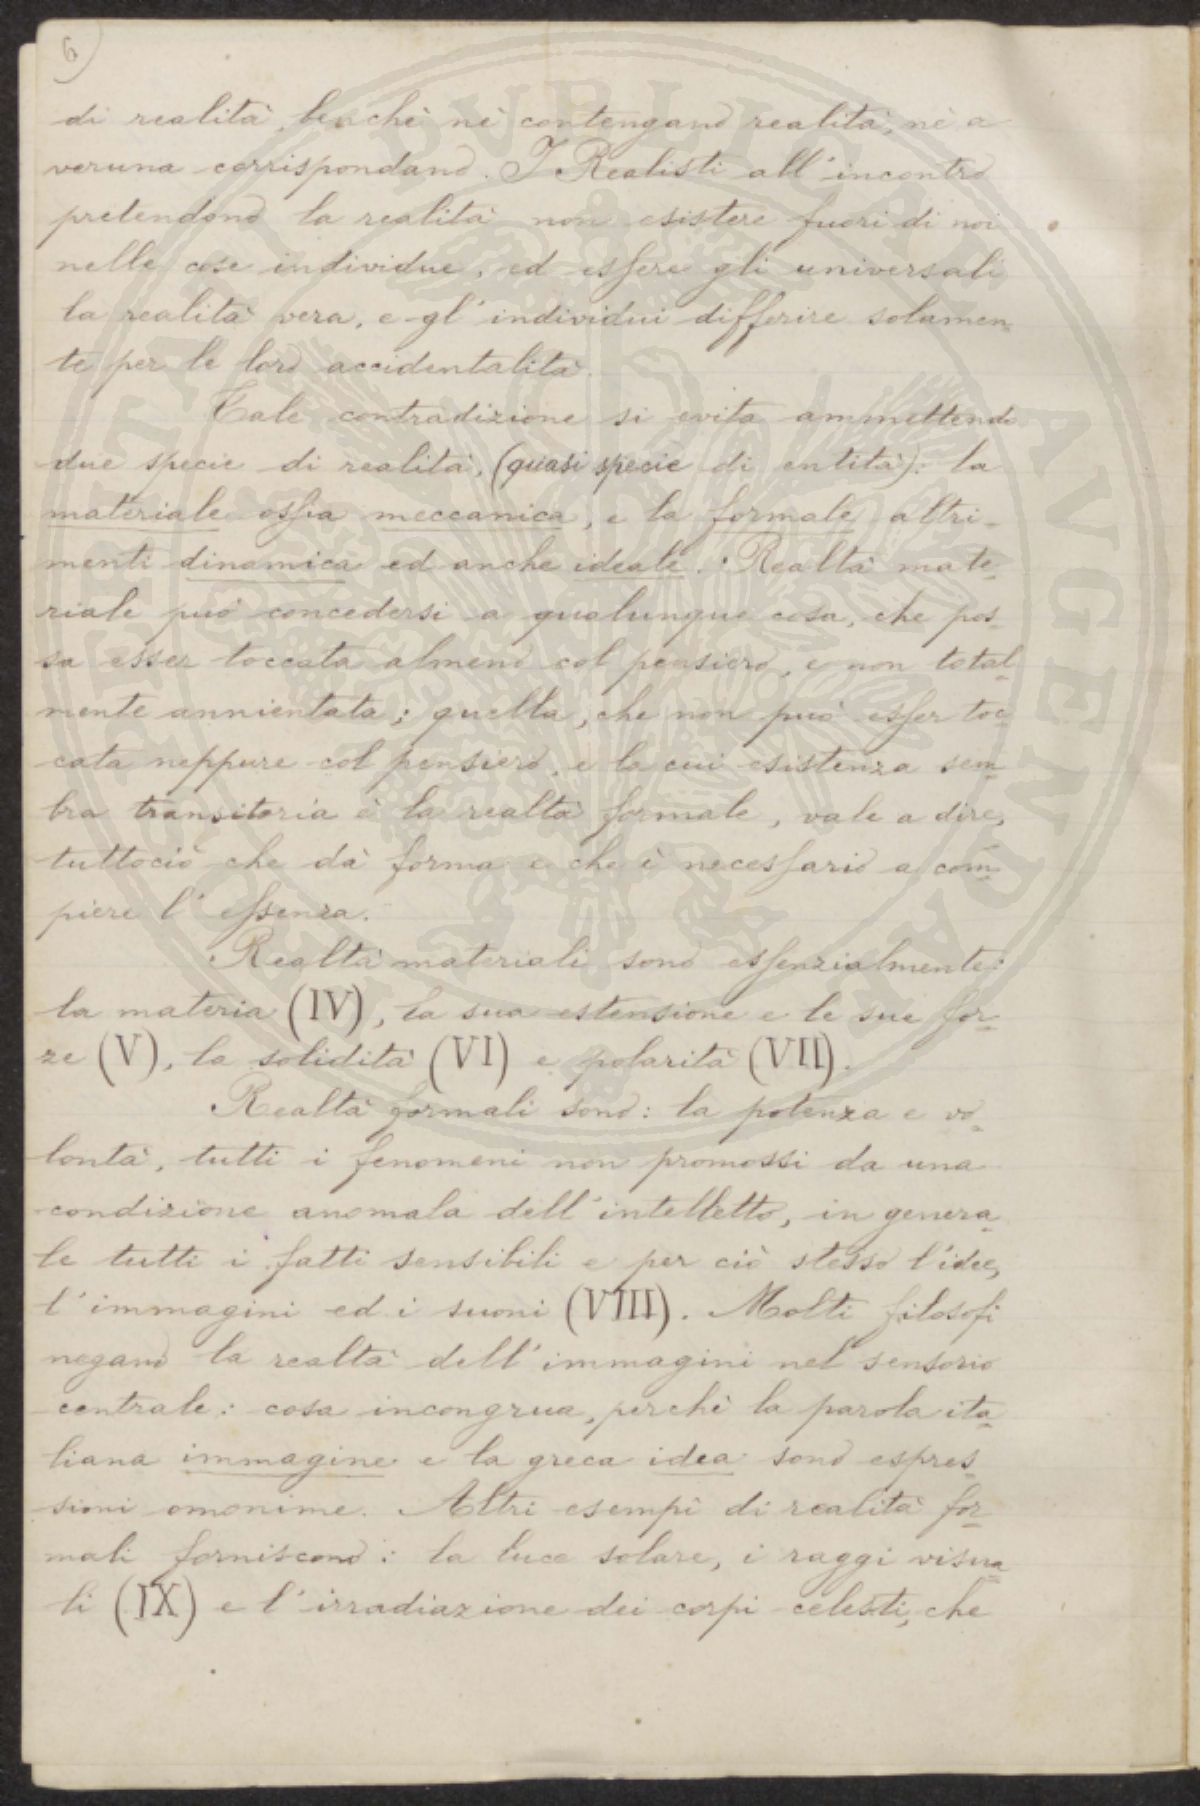 6)
di realità, benchè nè contengano realità, nè a
veruna corrispondano. I Realisti all'incontro
pretendono la realità non esistere fuori di noi
nelle cose individue, ed essere gli universali
la realità vera, e gl'individui differire solamen-
te per le loro accidentalità.
Tale contradizione si evita ammettendo
due specie di realità, (quasi specie di entità): la
materiale ossia meccanica, e la formale altri-
menti dinamica ed anche ideale. Realtà mate-
riale può concedersi a qualunque cosa, che pos-
sa esser toccata almeno col pensiero, e non total-
mente annientata; quella, che non può esser toc-
cata neppure col pensiero, e la cui esistenza sem-
bra transitoria è la realtà formale, vale a dire,
tuttociò che dà forma e che è necessario a com-
piere l'essenza.
Realtà materiali sono essenzialmente:
la materia (IV), la sua estensione e le sue for-
ze (V), la solidità (VI) e polarità (VII).
Realtà formali sono: la potenza e vo-
lontà, tutti i fenomeni non promossi da una
condizione anomala dell'intelletto, in genera-
le tutti i fatti sensibili e per ciò stesso l'idee,
l'immagini ed i suoni (VIII). Molti filosofi
negano la realtà dell'immagini nel sensorio
centrale: cosa incongrua, perchè la parola ita-
liana immagine e la greca idea sono espres-
sioni omonime. Altri esempi di realità for-
mali forniscono: la luce solare, i raggi visua-
li (IX) e l'irradiazione dei corpi celesti, che
PVBLICAE
AVGENDAE